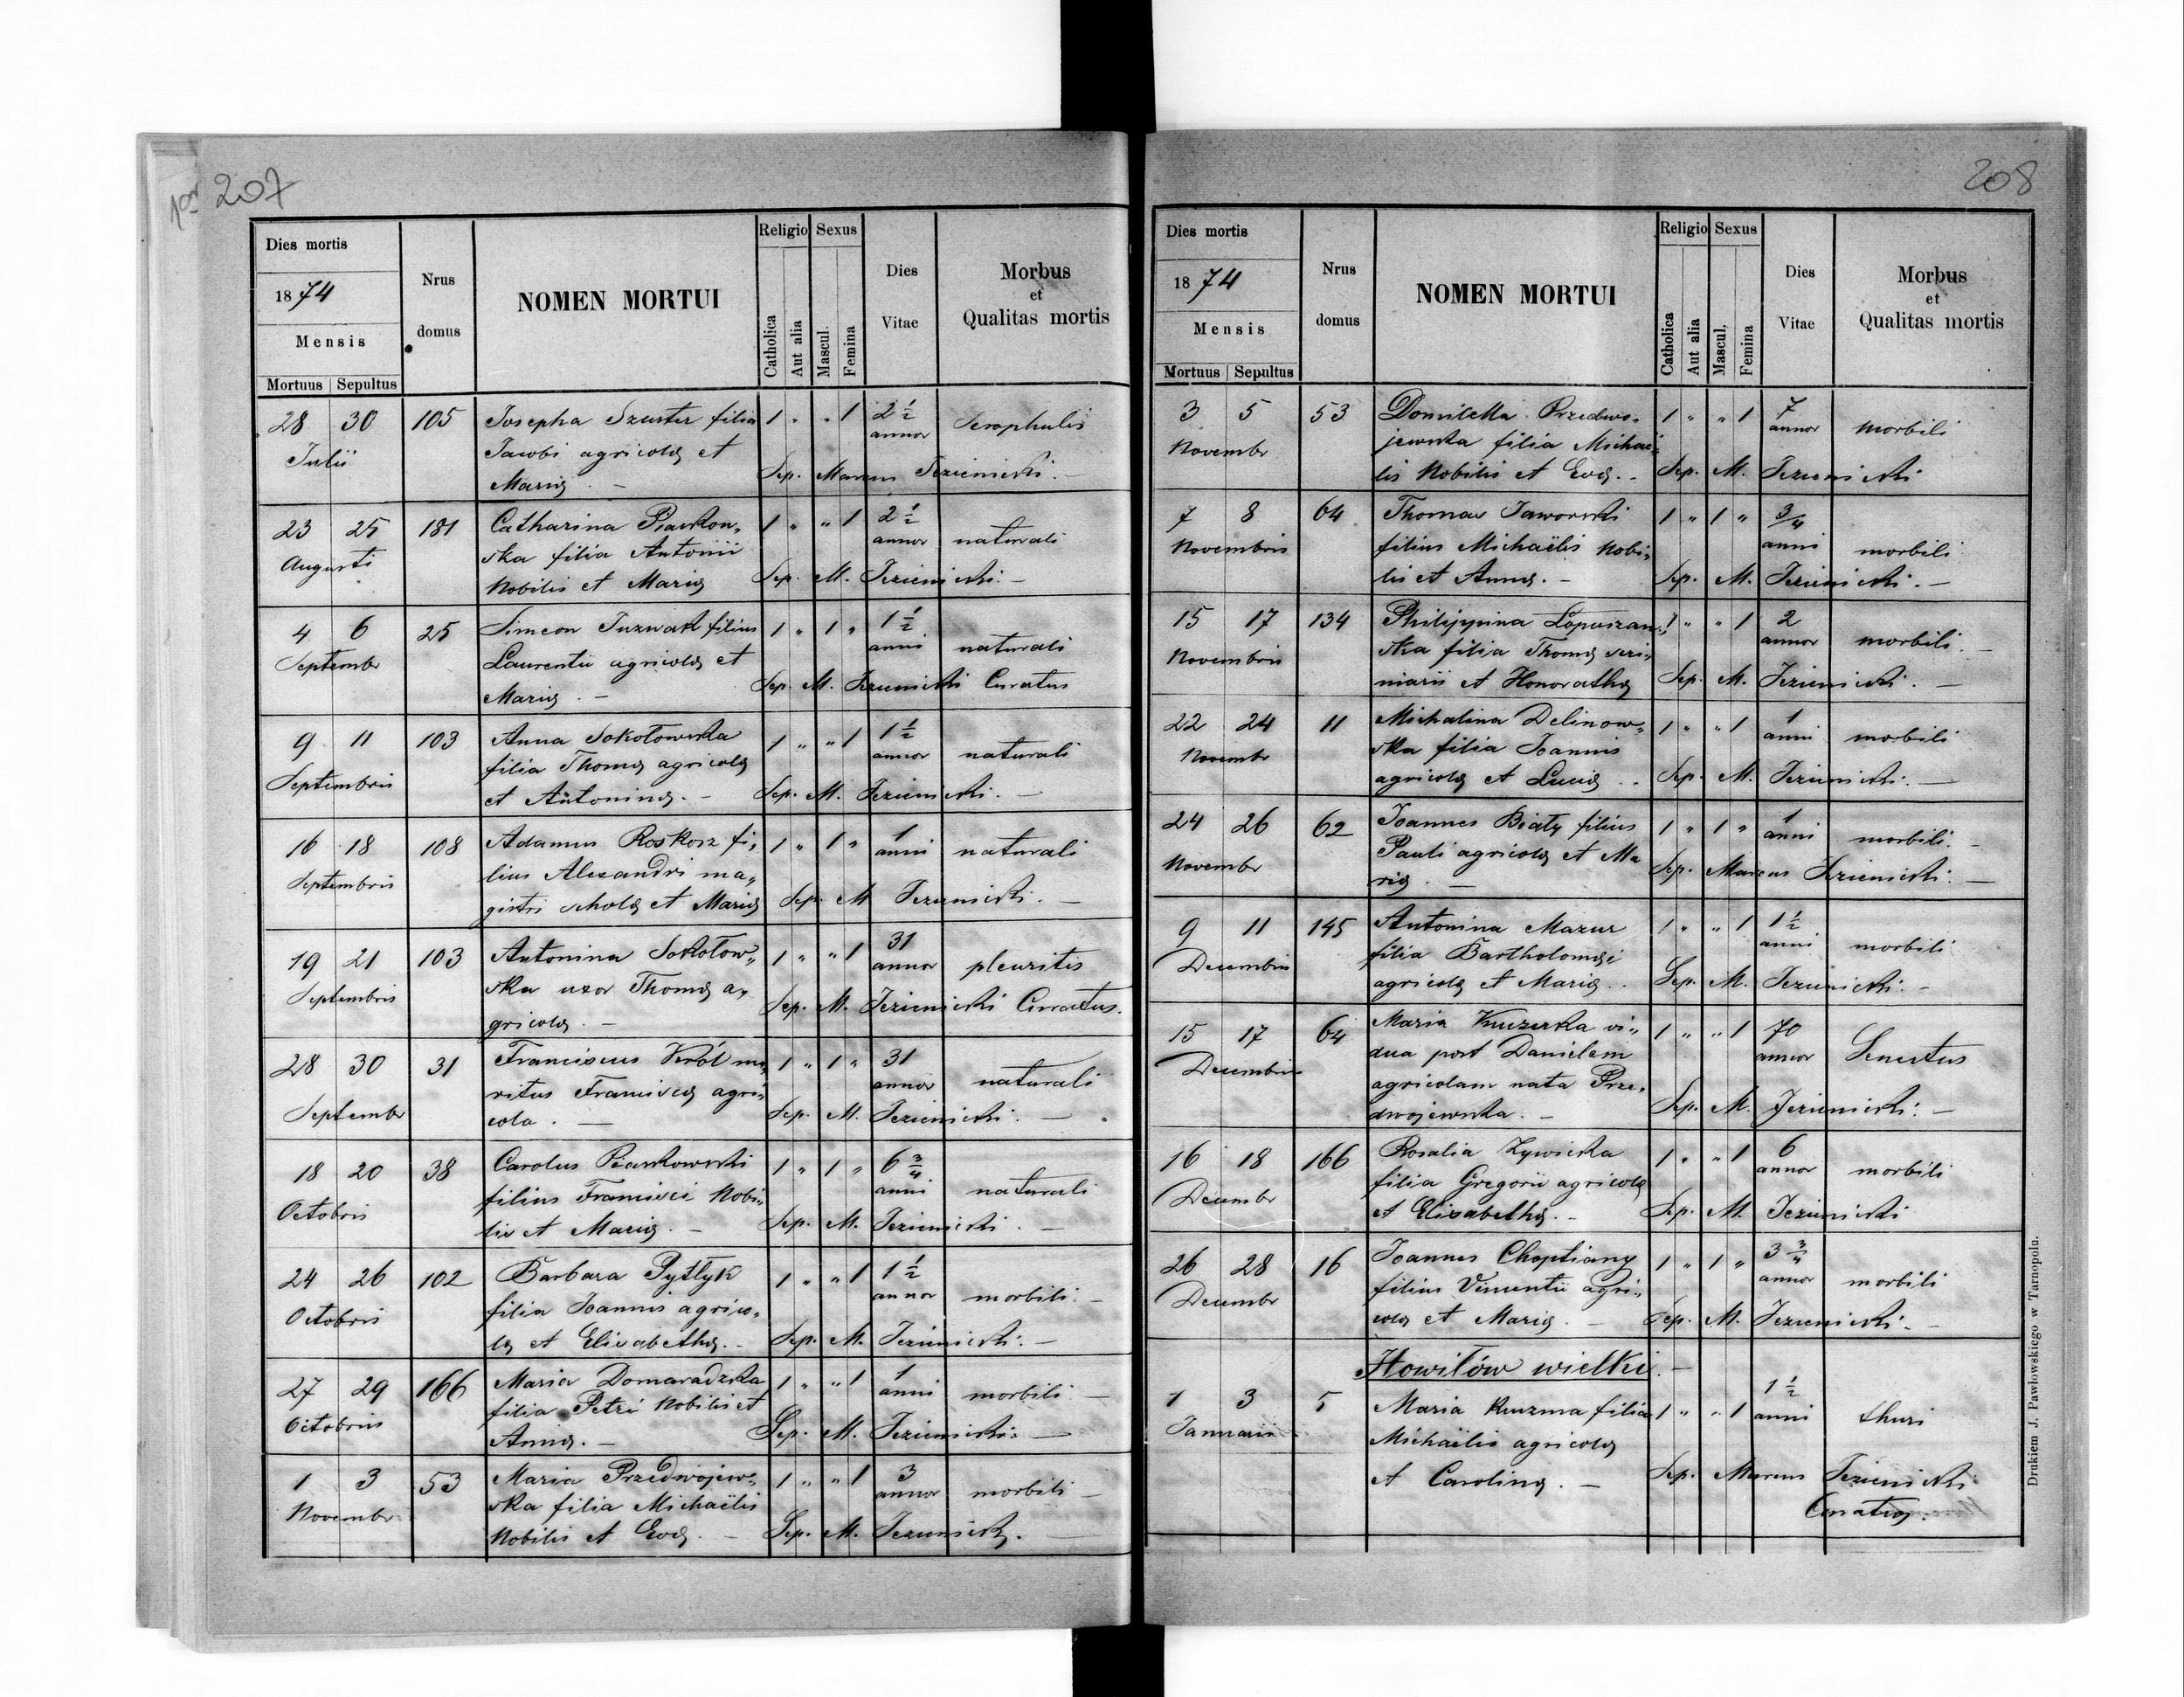 por 207
Dies mortis
1874
Mensis
Mortuus Sepultus
Nrus domus
NOMEN MORTUI
Religio Sexus
Catholica Aut alia Mascul. Femina
Dies Vitae
Morbus
et
Qualitas mortis
28 30 105 Josepha Szuster filia 1 " " 1 2 1/2 annor Scrophulis
Julii Jacobi agricolæ et
Mariæ. – Sep. Marcus Jezienicki. –
23 25 181 Catharina Piaskow„ 1 " " 1 2 1/2 annor naturali
Augusti ska filia Antonii
Nobilis et Mariæ Sep. M. Jezienicki. –
4 6 25 Simeon Tuzwak filius 1 " 1 " 1 1/2 anni naturali
Septembr Laurentii agricolæ et
Mariæ. – Sep. M. Jezienicki Curatus
9 11 103 Anna Sokołowska 1 " " 1 1 1/2 annor naturali
Septembris filia Thomæ agricolæ
et Antoninæ. – Sep. M. Jezienicki. –
16 18 108 Adamus Roskosz fi„ 1 " 1 " 1 anni naturali
Septembris lius Alexandri ma„
gistri scholæ et Mariæ Sep. M Jezienicki. –
19 21 103 Antonina Sokołow„ 1 " " 1 31 annor pleuritis
Septembris ska uxor Thomæ a„
gricolæ. – Sep. M. Jezienicki Curatus.
28 30 31 Franciscus Król ma„ 1 " 1 " 31 annor naturali
Septembr ritus Franciscæ agri„
cola. – Sep. M. Jezienicki. –
18 20 38 Carolus Piaskowski 1 " 1 " 6 3/4 anni naturali
Octobris filius Francisci Nobi„
lis et Mariæ. – Sep. M. Jezienicki. –
24 26 102 Barbara Pytlyk 1 " " 1 1 1/2 annor morbili. –
Octobris filia Joannis agrico„
læ et Elisabethæ. – Sep. M. Jezienicki. –
27 29 166 Maria Domaradzka 1 " " 1 1 anni morbili –
Octobris filia Petri Nobilis et
Annæ. – Sep. M. Jezienicki. –
1 3 53 Maria Przedwojew„ 1 " " 1 3 annor morbili –
Novembr ska filia Michaëlis
Nobilis et Evæ. – Sep. M. Jezienicki.
208
Dies mortis
1874
Mensis
Mortuus Sepultus
Nrus domus
NOMEN MORTUI
Religio Sexus
Catholica Aut alia Mascul. Femina
Dies Vitae
Morbus
et
Qualitas mortis
3 5 53 Domicella Przedwo„ 1 " " 1 7 annor morbili
Novembr jewska filia Michaë„
lis Nobilis et Evæ. – Sep. M. Jezienicki
7 8 64 Thomas Jaworski 1 " 1 " 3/4 anni morbili
Novembris filius Michaëlis Nobi„
lis et Annæ. – Sep. M. Jezienicki. –
15 17 134 Philippina Łopuszan„ 1 " " 1 2 annor morbili. –
Novembris ska filia Thomæ scri„
niarii et Honorathæ Sep. M. Jezienicki. –
22 24 11 Michalina Delinow„ 1 " " 1 1 anni morbili
Novembr ska filia Joannis
agricolæ et Luciæ. . Sep. M. Jezienicki. –
24 26 62 Joannes Biały filius 1 " 1 " 1 anni morbili. –
Novembr Pauli agricolæ et Ma
riæ. – Sep. Marcus Jezienicki. –
9 11 145 Antonina Mazur 1 " " 1 1 1/2 anni morbili
Decembris filia Bartholomæi
agricolæ et Mariæ. . Sep. M. Jezienicki. –
15 17 64 Maria Kruzerka vi„ 1 " " 1 70 annor Senectus
Decembris dua post Danielem
agricolam nata Prze„
dwojewska. – Sep. M. Jezienicki. –
16 18 166 Rosalia Zywicka 1 " " 1 6 annor morbili
Decembr filia Gregorii agricolæ
et Elisabethæ. – Sep. M. Jezienicki
26 28 16 Joannes Choptiany 1 " 1 " 3 3/4 annor morbili
Decembr filius Vincentii agri„
colæ et Mariæ. – Sep. M. Jezienicki. –
Howiłów wielki. –
1 3 5 Maria Kuzma filia 1 " " 1 1 1/2 anni thusi
Januarii Michaëlis agricolæ
et Carolinæ. – Sep. Marcus Jezienicki
Curatus.
Drukiem J. Pawłowskiego w Tarnopolu.